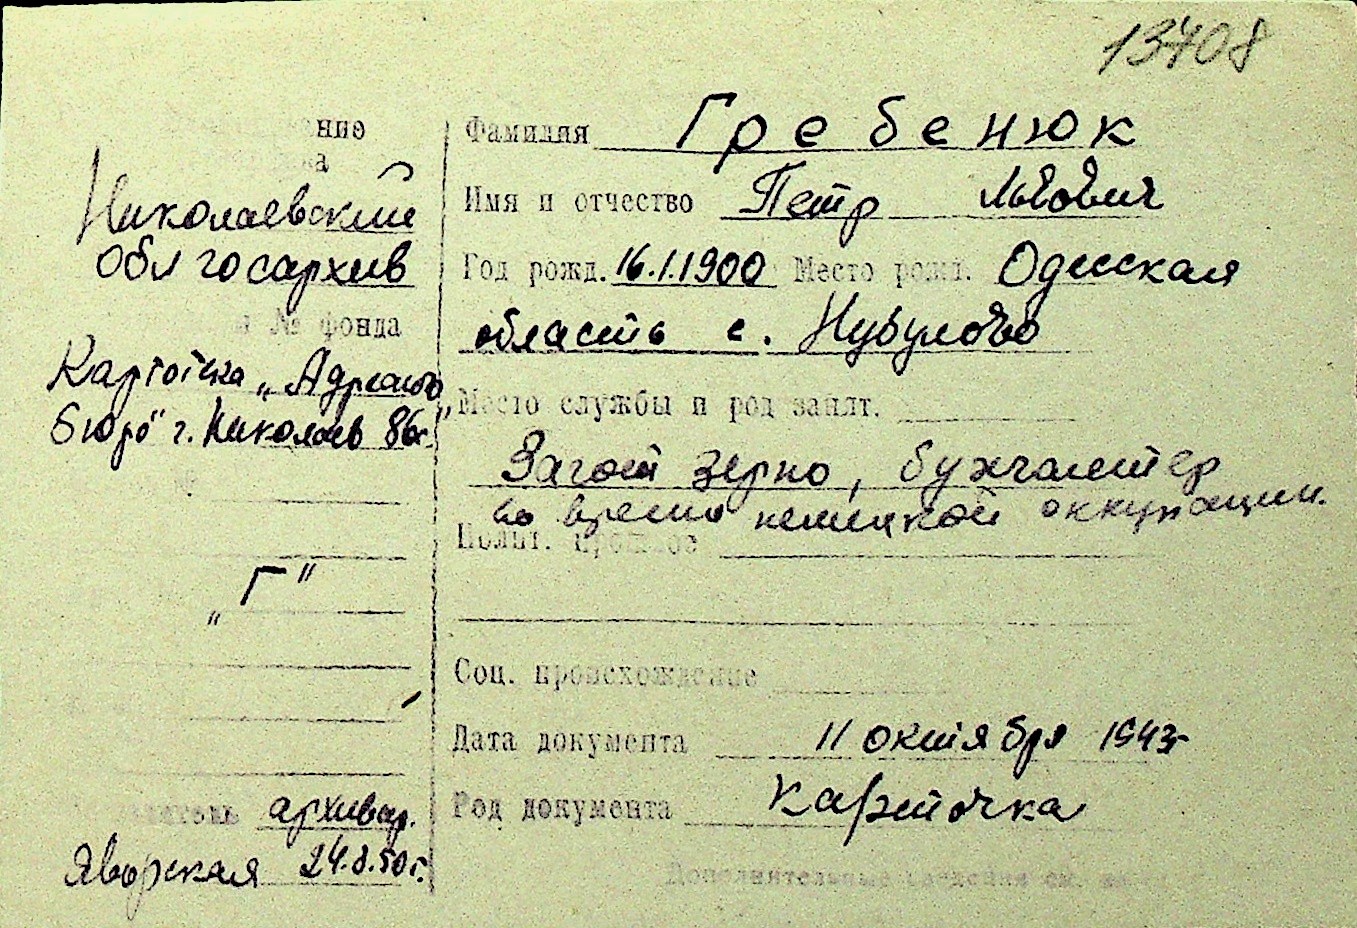 13708
ние
Николаевский
облгосархив
№ фонда
Картотека „Адресного
бюро" г. Николаев 86г."
„Г"
архивар.
Яворская 24.8.50г.
Фамилия Гребенюк
Имя и отчество Петр Львович
Год рожд. 16.1.1900 Место рожд. Одесская
область с.
Место службы и род занят.
Загот зерно, бухгалтер
во время немецкой оккупации.
Полит. прошлое
Соц. происхождение
Дата документа 11 октября 1943г
Род документа карточка
Дополнительные сведения см. на